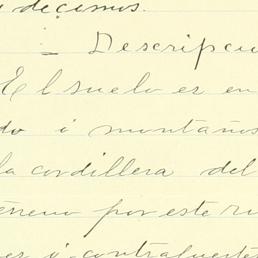 decimos.
Descripci
El suelo es en
do ó montaños
la cordillera del
erreno por este ru
es ó contrafuertes